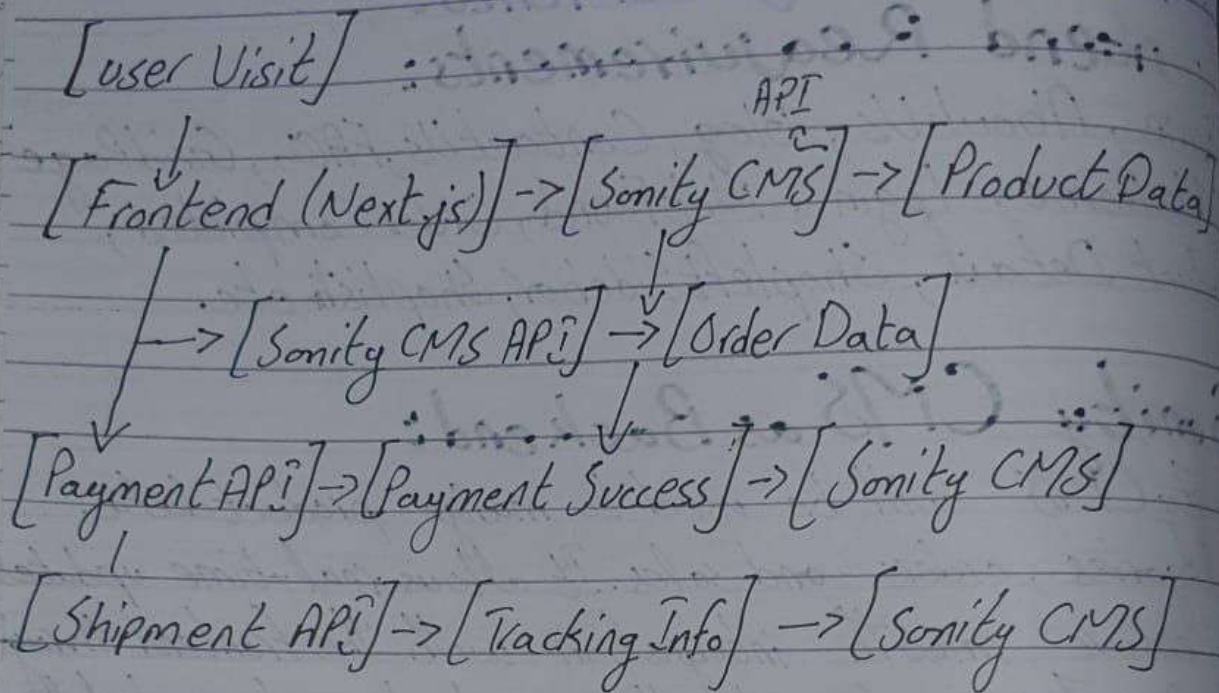 [User Visit]
API
[Frontend (Next.js)] -> [Sonity CMS] -> [Product Data]
-> [Sonity CMS API] -> [Order Data]
[Payment API] -> [Payment Success] -> [Sonity CMS]
[Shipment API] -> [Tracking Info] -> [Sonity CMS]